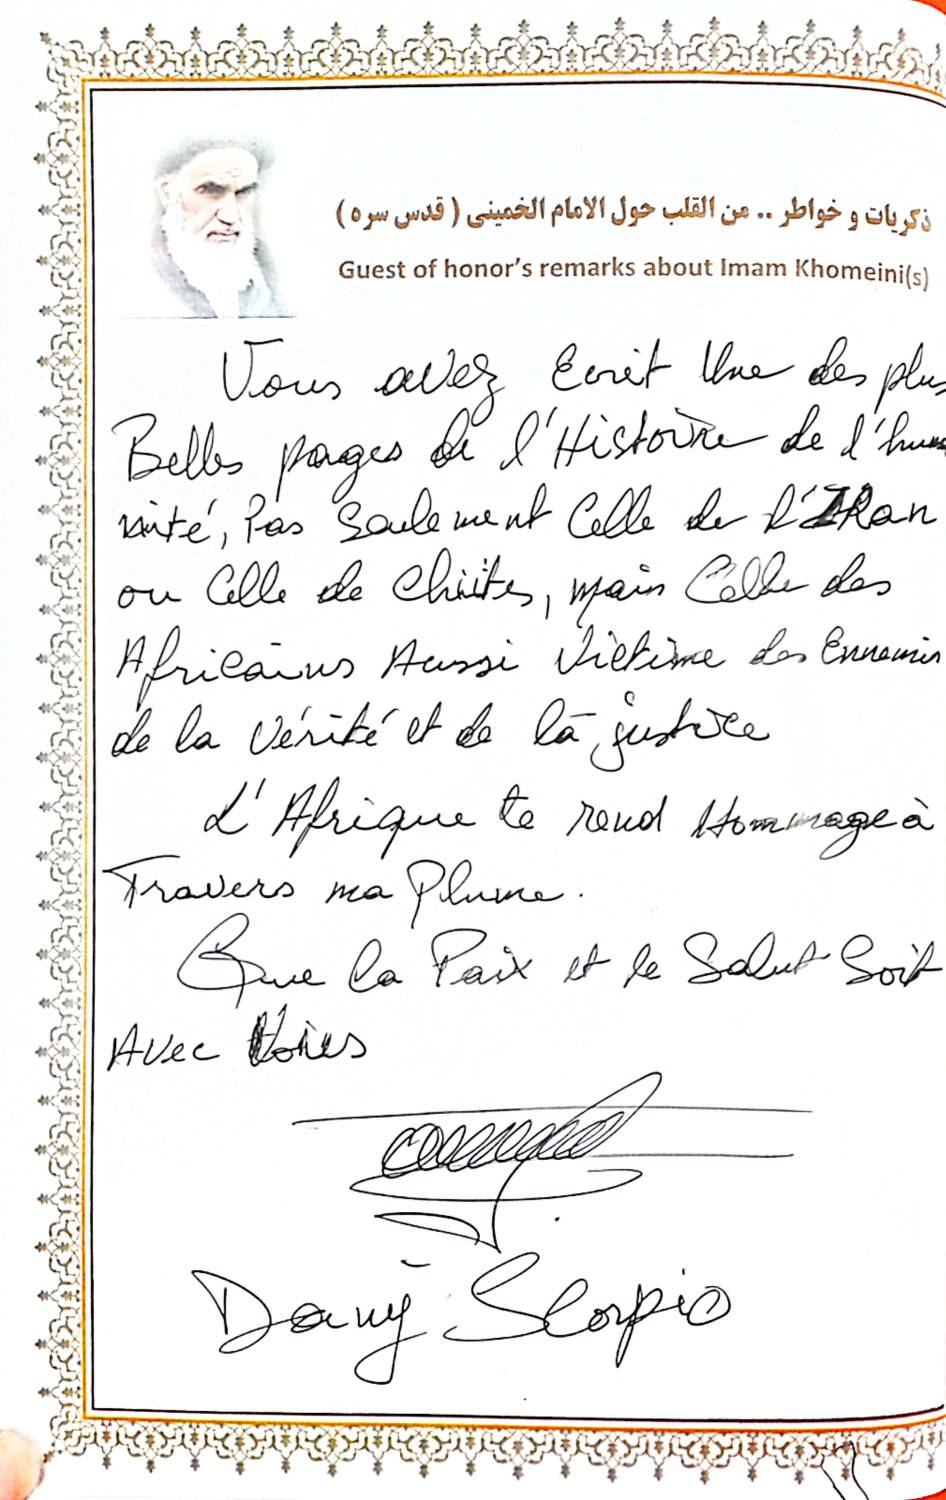 ذكريات و خواطر .. من القلب حول الامام الخميني ( قدس سره )
Guest of honor's remarks about Imam Khomeini(s)
Vous avez Ecrit Une des plus
Belles pages de l'Histoire de l'huma
nité, Pas Seulement Celle de l'IRan
ou Celle de Chiites, mais Celle des
Africains Aussi Victime des Ennemis
de la Vérité et de la justice
L'Afrique te rend Hommage à
Travers ma Plume.
Que la Paix et le Salut Soit
Avec Vous
Dany Scorpio